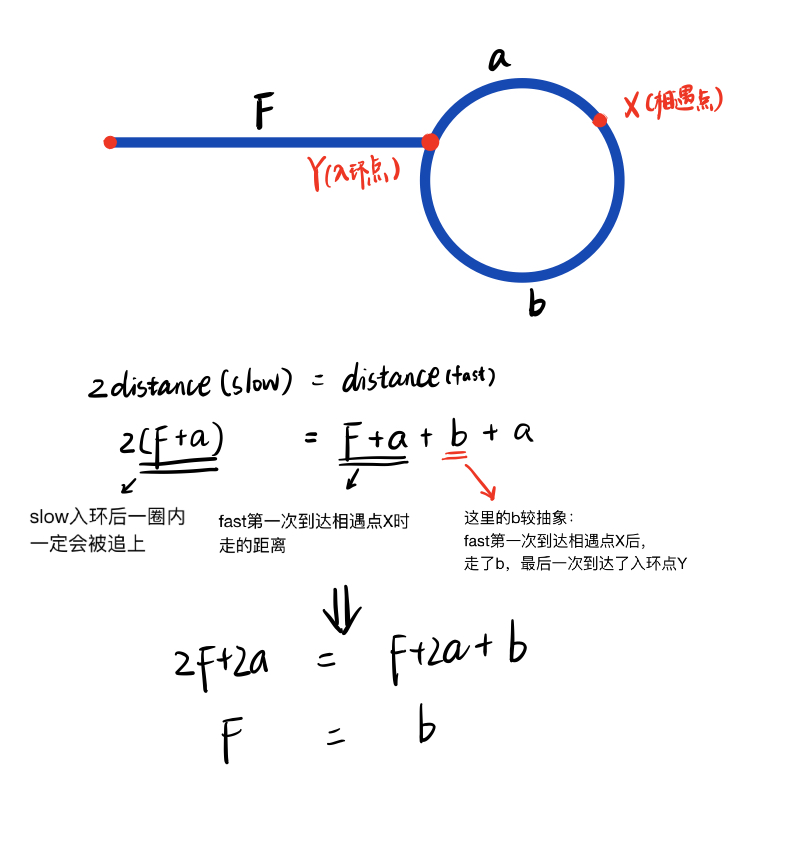 a
F
X(相遇点)
Y(入环点)
b
2distance(slow) = distance(fast)
2(F+a) = F+a+b+a
slow入环后一圈内
一定会被追上
fast第一次到达相遇点X时
走的距离
这里的b较抽象：
fast第一次到达相遇点X后，
走了b，最后一次到达了入环点Y
2F+2a = F+2a+b
F = b